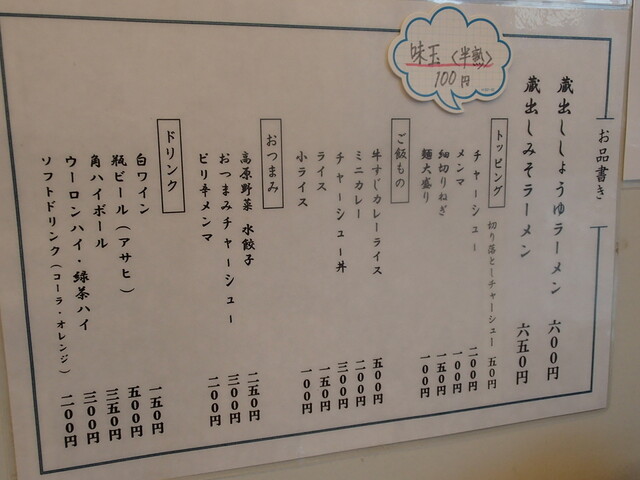 味玉〈半熟〉
100円
お品書き
蔵出ししょうゆラーメン 六〇〇円
蔵出しみそラーメン 六五〇円
トッピング
切り落としチャーシュー 五〇円
チャーシュー 二〇〇円
メンマ 一〇〇円
細切りねぎ 一五〇円
麺大盛り 一〇〇円
ご飯もの
牛すじカレーライス 五〇〇円
ミニカレー 二〇〇円
チャーシュー丼 三〇〇円
ライス 一五〇円
小ライス 一〇〇円
おつまみ
高原野菜 水餃子 二五〇円
おつまみチャーシュー 三〇〇円
ピリ辛メンマ 二〇〇円
ドリンク
白ワイン 一五〇円
瓶ビール（アサヒ） 五〇〇円
角ハイボール 三五〇円
ウーロンハイ・緑茶ハイ 三〇〇円
ソフトドリンク（コーラ・オレンジ） 二〇〇円